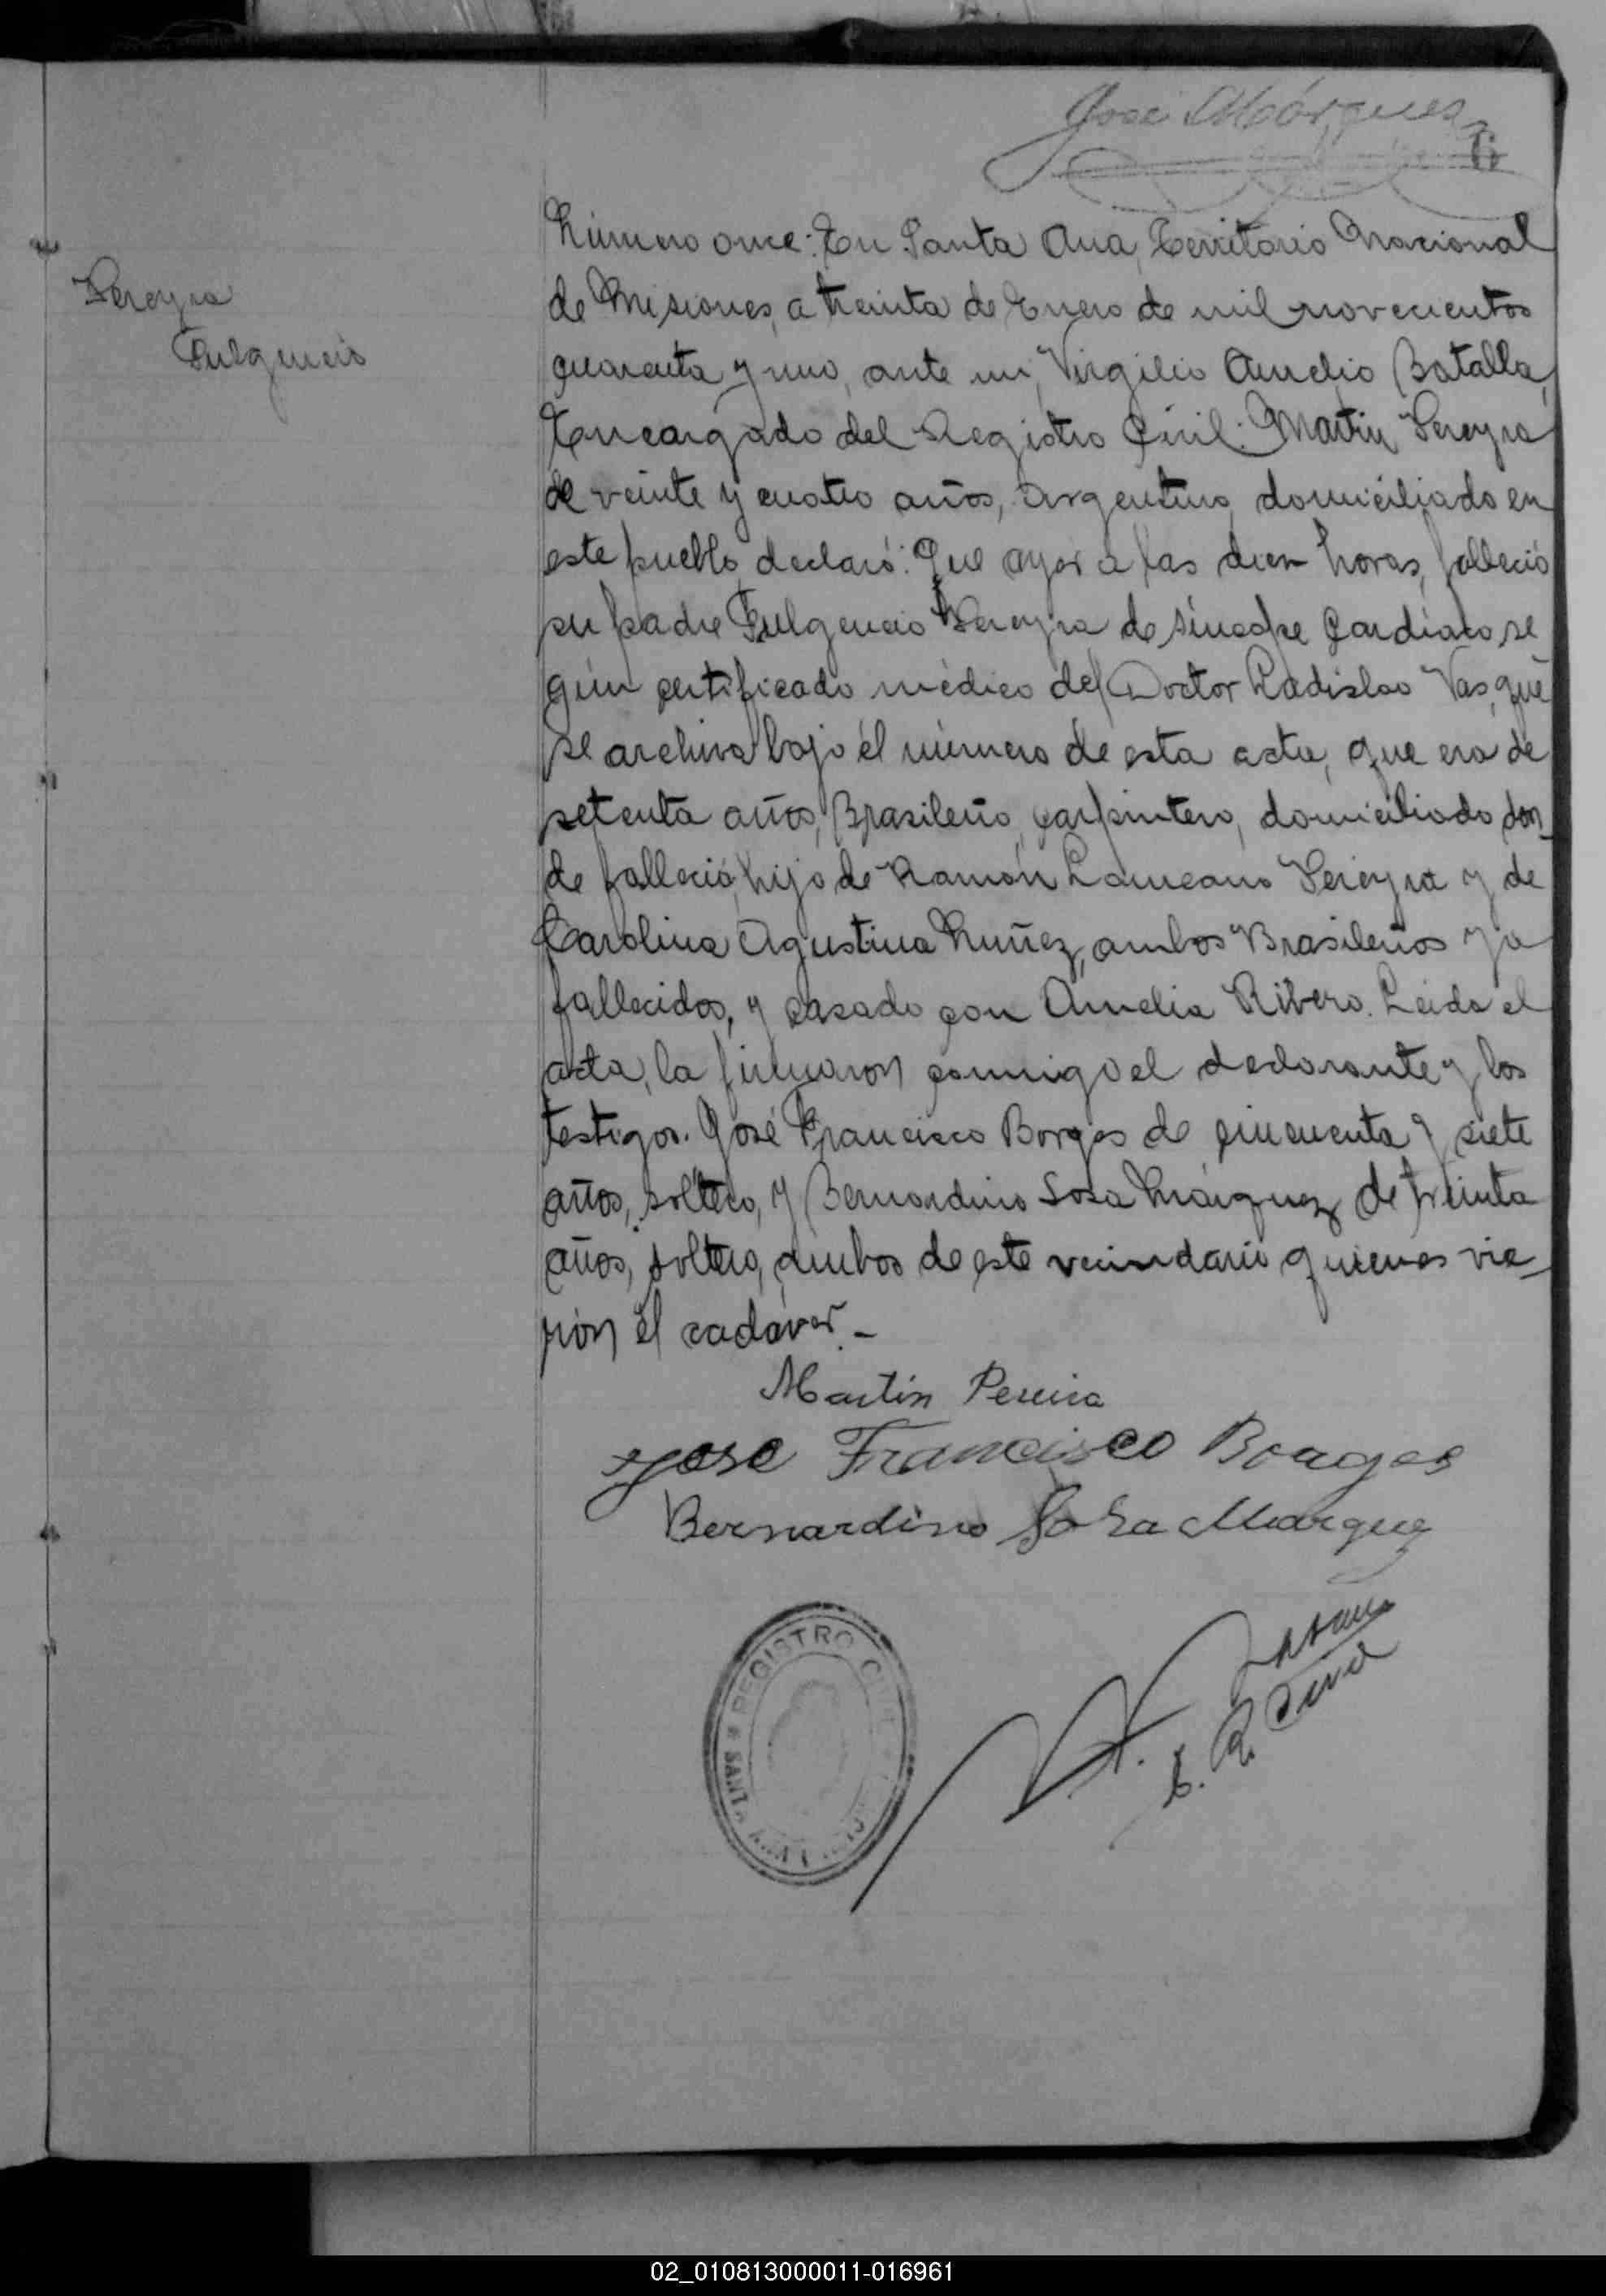 José Márques
6
Pereyra
Fulgencio
Número once: En Santa Ana, Territorio Nacional
de Misiones, a treinta de Enero de mil novecientos
cuarenta y uno, ante mi, Virgilio Aurelio Batalla,
Encargado del Registro Civil: Martin Pereyra
de veinte y cuatro años, argentino, domiciliado en
este pueblo, declaró: Que ayer a las diez horas, falleció
su padre Fulgencio Pereyra, de síncope cardíaco, se
gún certificado médico del Doctor Ladislao Vas, que
se archiva bajo el número de esta acta, que era de
setenta años, Brasileño, carpintero, domiciliado don_
de falleció, hijo de Ramón Laureano Pereyra y de
Carolina Agustina Nuñez, ambos Brasileños ya
fallecidos, y casado con Amelia Ribero. Leida el
acta, la firmaron conmigo el declarante y los
testigos. José Francisco Borges de cincuenta y siete
años, soltero, y Bernardino Sosa Márquez de treinta
años, soltero, ambos de este vecindario quienes vie_
ron el cadáver._
Martin Pereira
Jose Francisco Borges
Bernardino Sosa Marquez
REGISTRO CIVIL
SANTA ANA
02_010813000011-016961